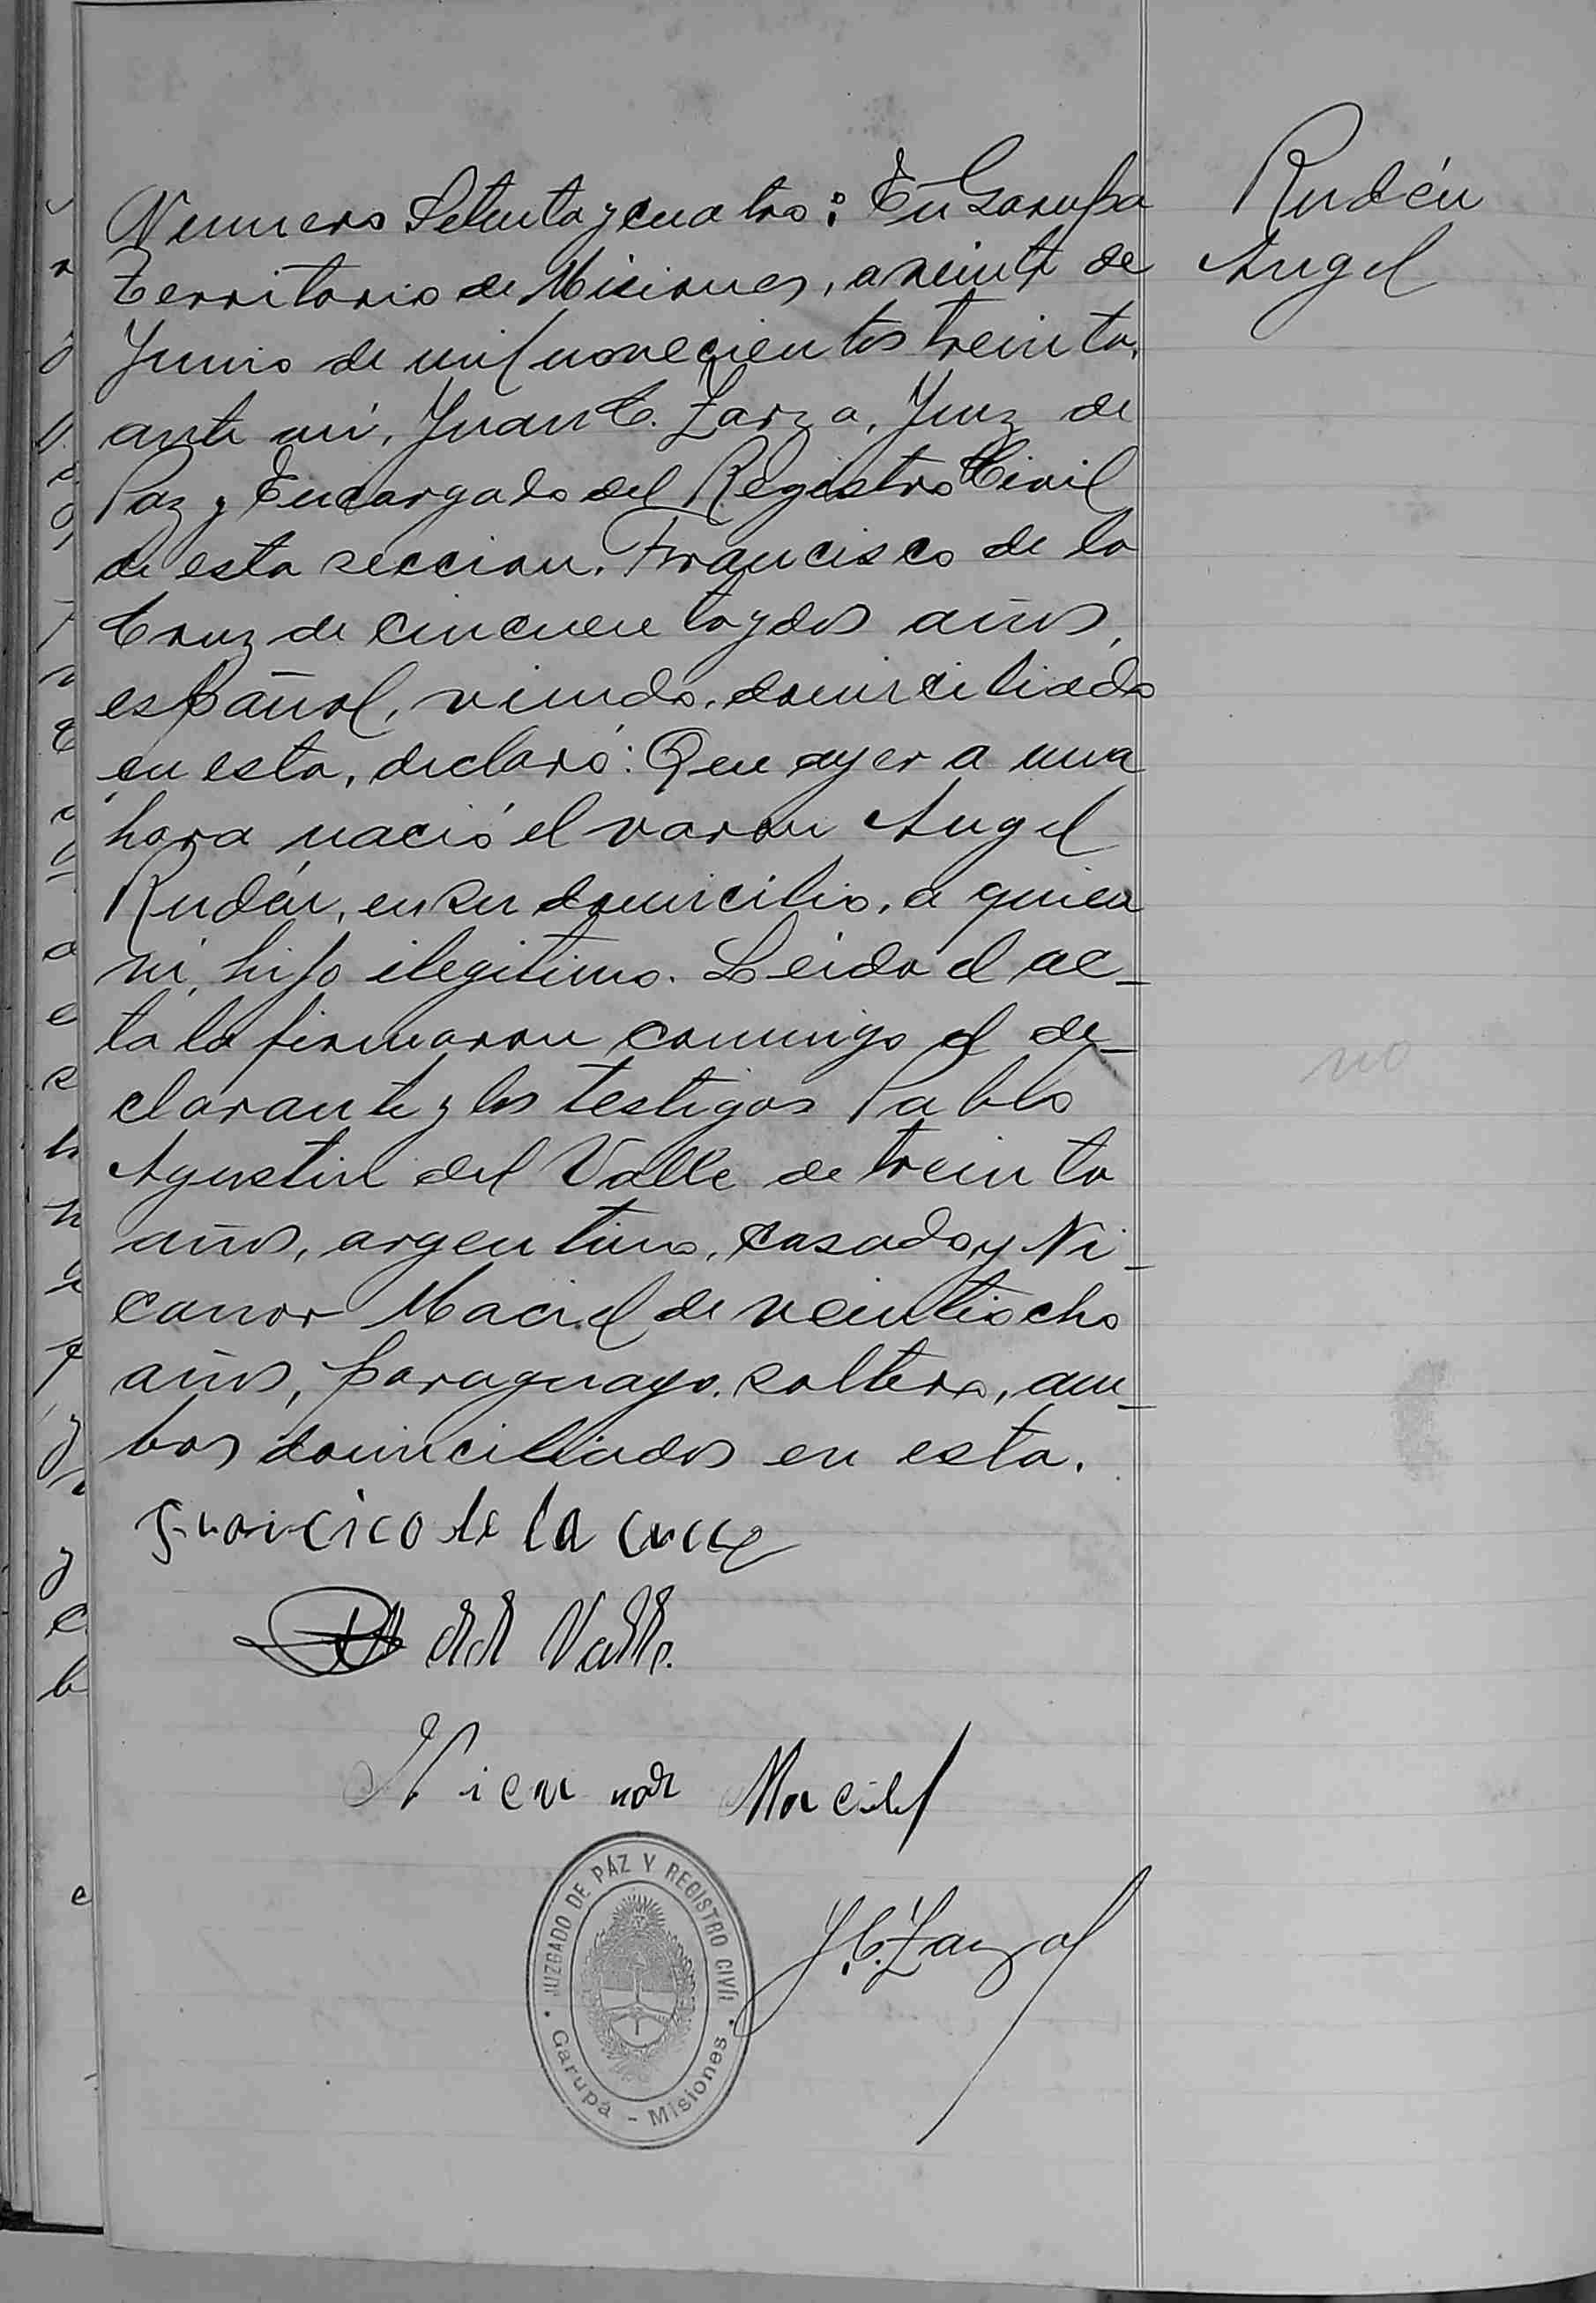 Rudén
Angel
Numero Setenta y cuatro: En Garupa
Territorio de Misiones, a veinte de
Junio de mil novecientos treinta,
ante mi, Juan C. Zarza, Juez de
Paz y Encargado del Registro Civil
de esta seccion. Francisco de la
Cruz de cincuenta y dos años,
español, viudo, domiciliado
en esta, declaró: Que ayer a una
hora nació el varon Angel
Rudén, en su domicilio, a quien
vi, hijo ilegitimo. Leida el ac_
ta la firmaron conmigo el de_
clarante y los testigos Pablo
Agustin del Valle de treinta
años, argentino, casado, y Ni_
canor Maciel de veintiocho
años, paraguayo, soltero, am_
bos domiciliados en esta.
no
Francisco de la Cruz
del Valle.
Nicanor Maciel
J. C. Zarza
JUZGADO DE PAZ Y REGISTRO CIVIL
Garupá - Misiones